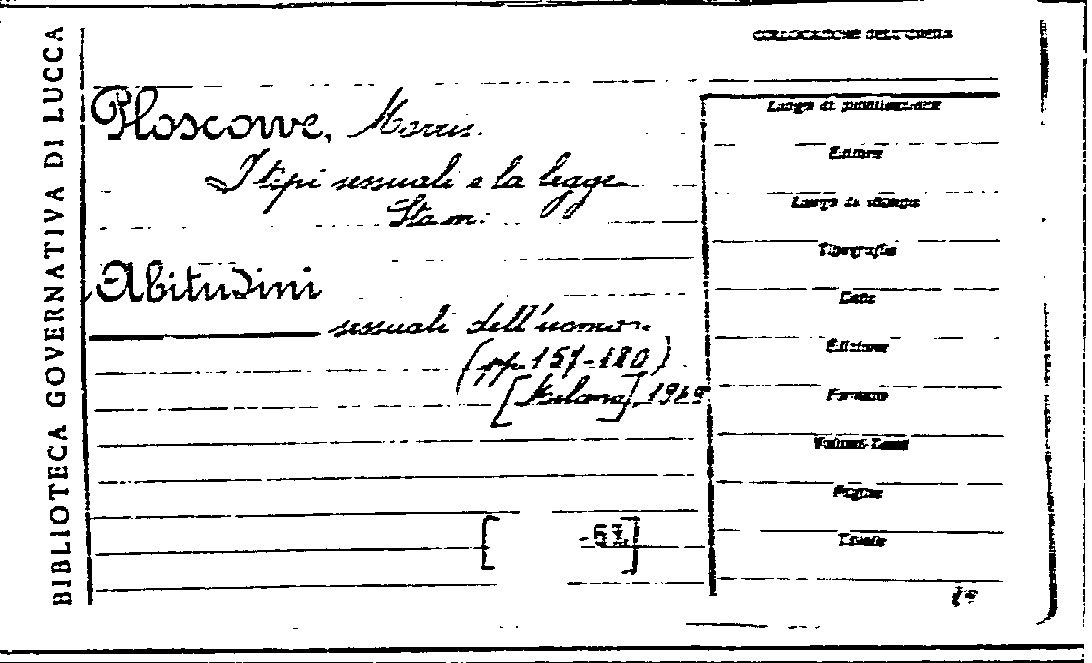 BIBLIOTECA GOVERNATIVA DI LUCCA
COLLOCAZIONE DELL'OPERA
Ploscowe, Morris.
I tipi sessuali e la legge
Stam:
Abitudini
sessuali dell'uomo.
(pp. 151-180)
[Milano],
Luogo di pubblicazione
Editore
Luogo di stampa
Tipografia
Data
Edizione
Formato
Volumi-Tomi
Pagine
Tavole